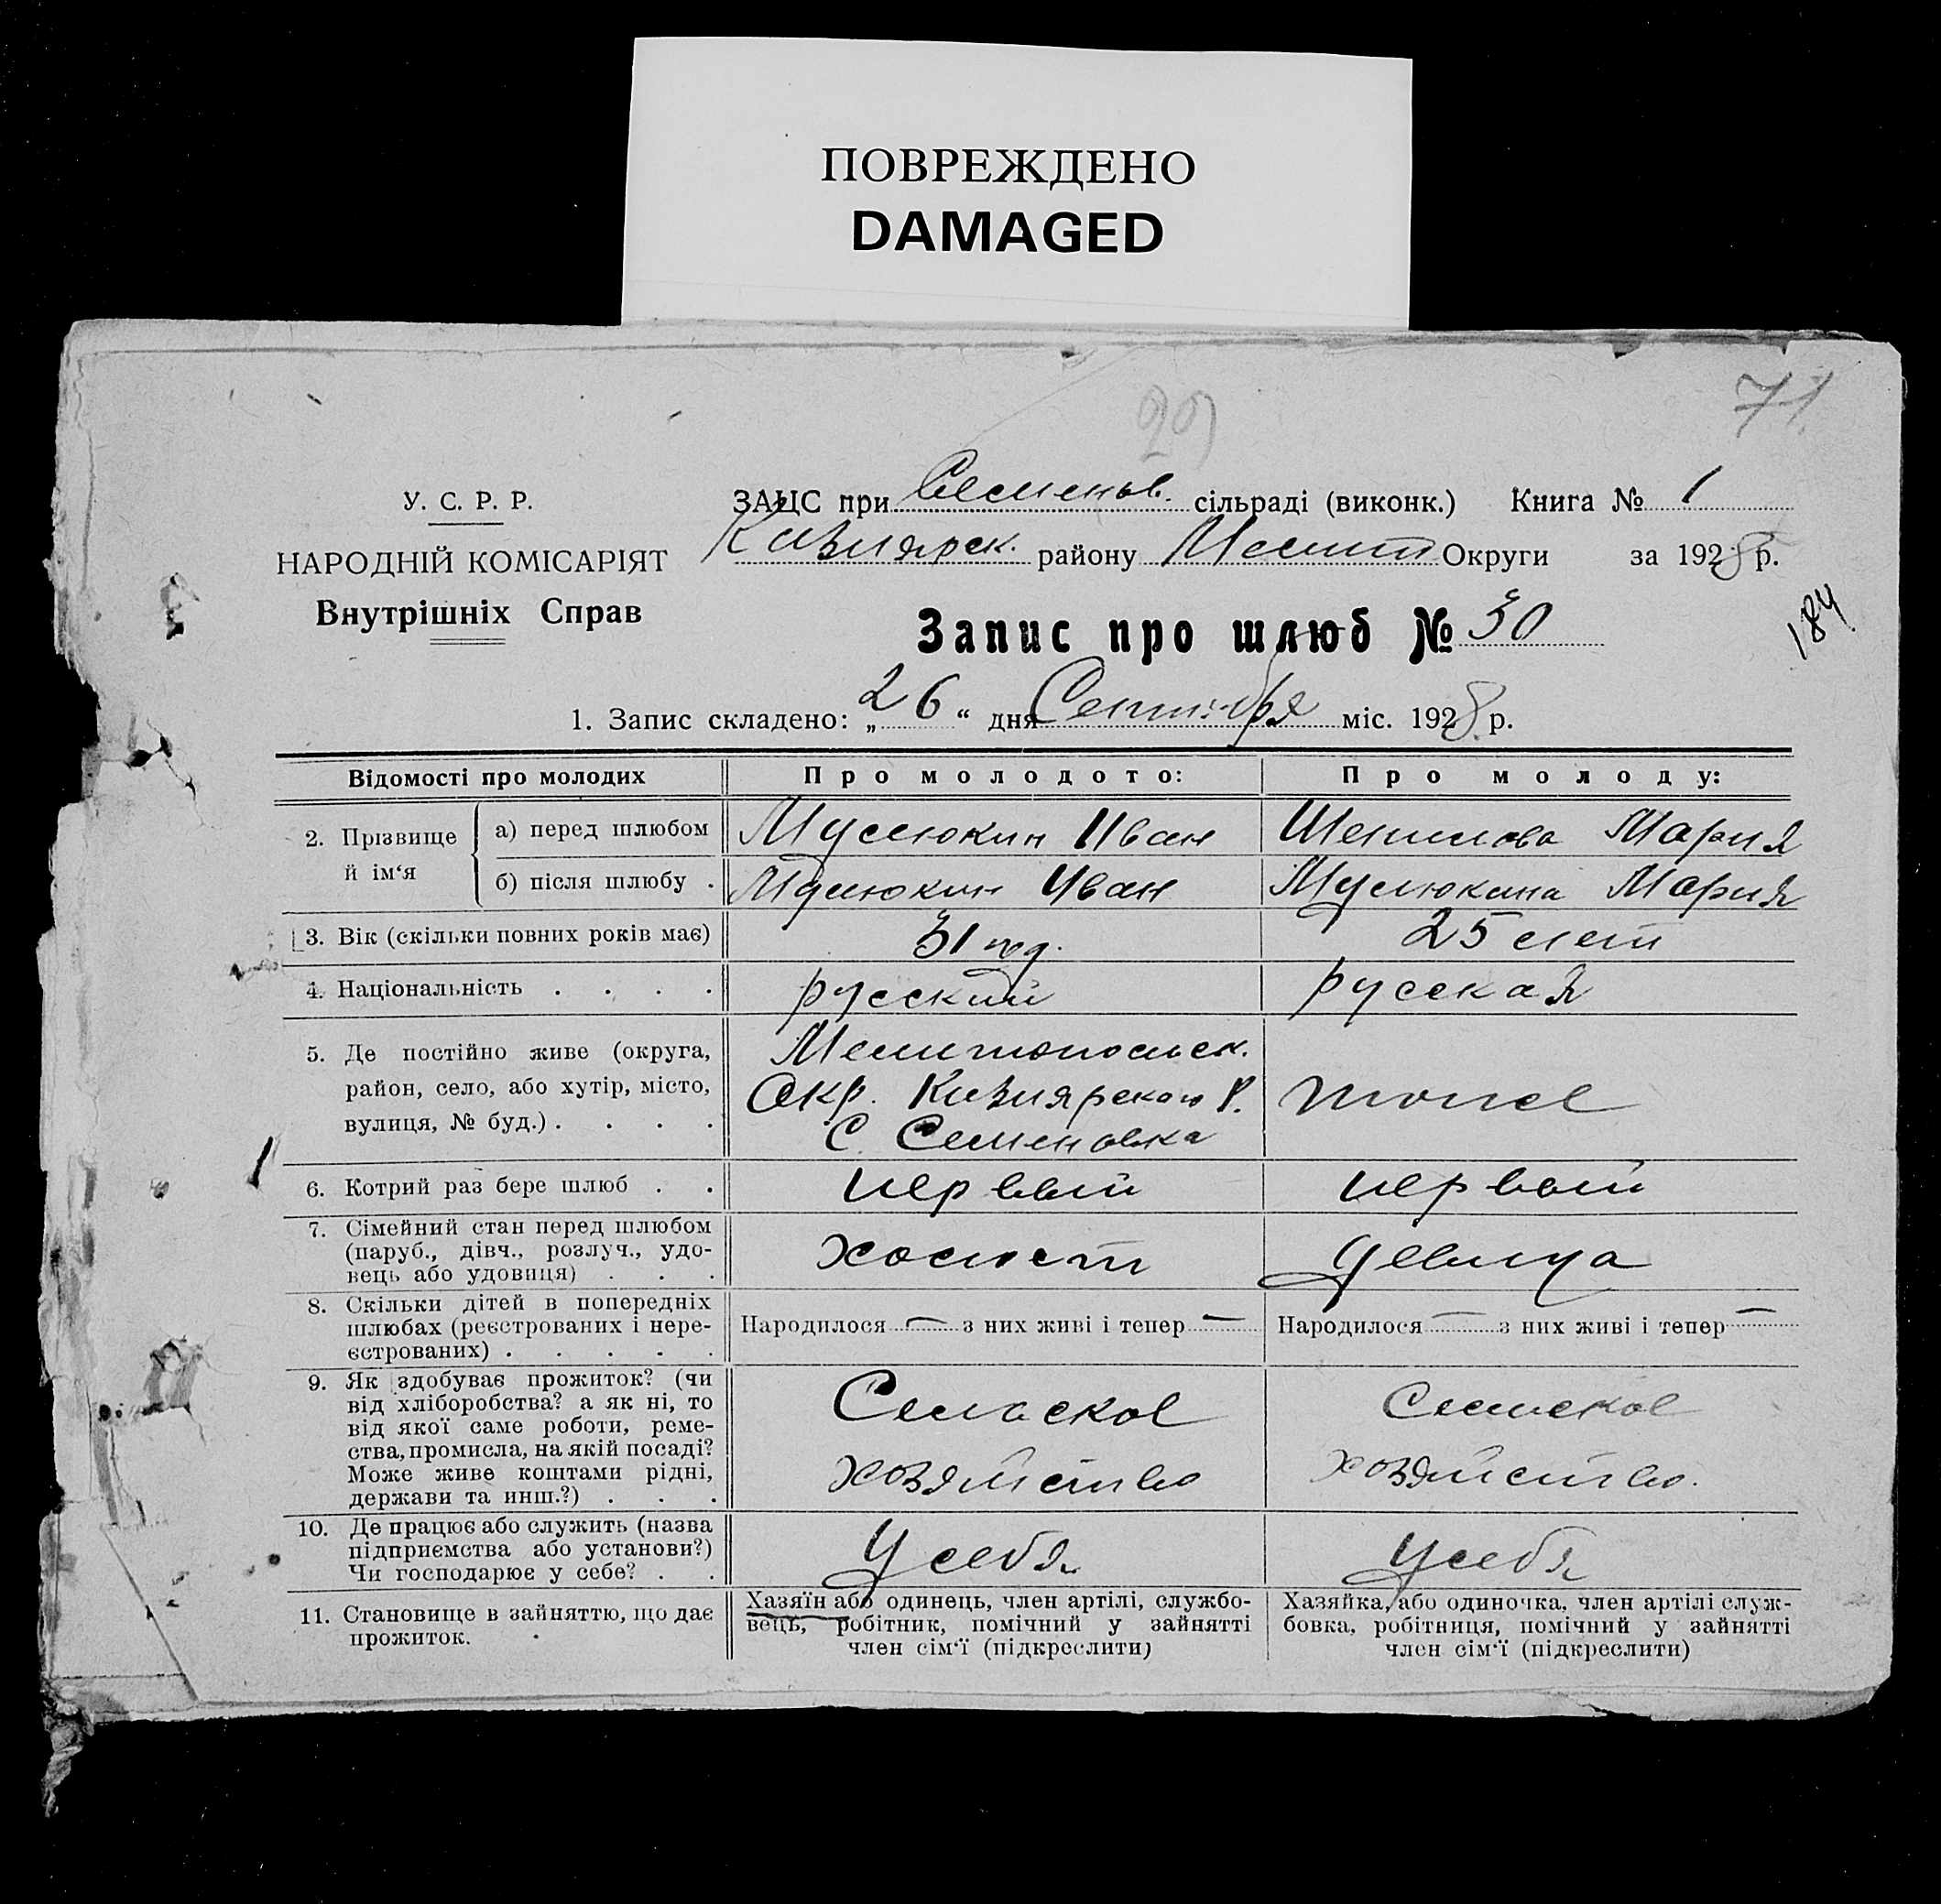 ПОВРЕЖДЕНО
DAMAGED
29
71
У. С. Р. Р.
НАРОДНІЙ КОМІСАРІЯТ
Внутрішніх Справ
ЗАЦС при Семенов. сільраді (виконк.) Книга № 1
Кизиярск. району Мелит Округи за 1928 р.
184
Запис про шлюб № 30
1. Запис складено: „26“ дня Сентября міс. 1928 р.
Відомості про молодих Про молодого: Про молоду:
2. Прізвище й ім‘я а) перед шлюбом Мумюкин Иван Мария
б) після шлюбу . Мумюкин Иван Мумюкина Мария
3. Вік (скільки повних років має) 31 год. 25 лет
4. Національність . . . . русский русская
5. Де постійно живе (округа, Мелитопольск.
район, село, або хутір, місто, Окр. Кизиярского Р. тоже
вулиця, № буд.) . . . . С. Семеновка
6. Котрий раз бере шлюб . . первый первый
7. Сімейний стан перед шлюбом
(паруб., дівч., розлуч., удо- холост девица
вець або удовиця) . . .
8. Скільки дітей в попередніх
шлюбах (реєстрованих і нере- Народилося — з них живі і тепер — Народилося — з них живі і тепер —
єстрованих) . . . . .
9. Як здобуває прожиток? (чи
від хліборобства? а як ні, то Сельское Сельское
від якої саме роботи, реме-
ства, промисла, на якій посаді?
Може живе коштами рідні, хозяйство хозяйство.
держави та инш.?) . . .
10. Де працює або служить (назва
підприємства або установи?) У себя У себя
Чи господарює у себе? . .
11. Становище в зайняттю, що дає
прожиток.
Хазяїн або одинець, член артілі, службо-
вець, робітник, помічний у зайнятті
член сім‘ї (підкреслити)
Хазяйка, або одиночка, член артілі служ-
бовка, робітниця, помічний у зайнятті
член сім‘ї (підкреслити)